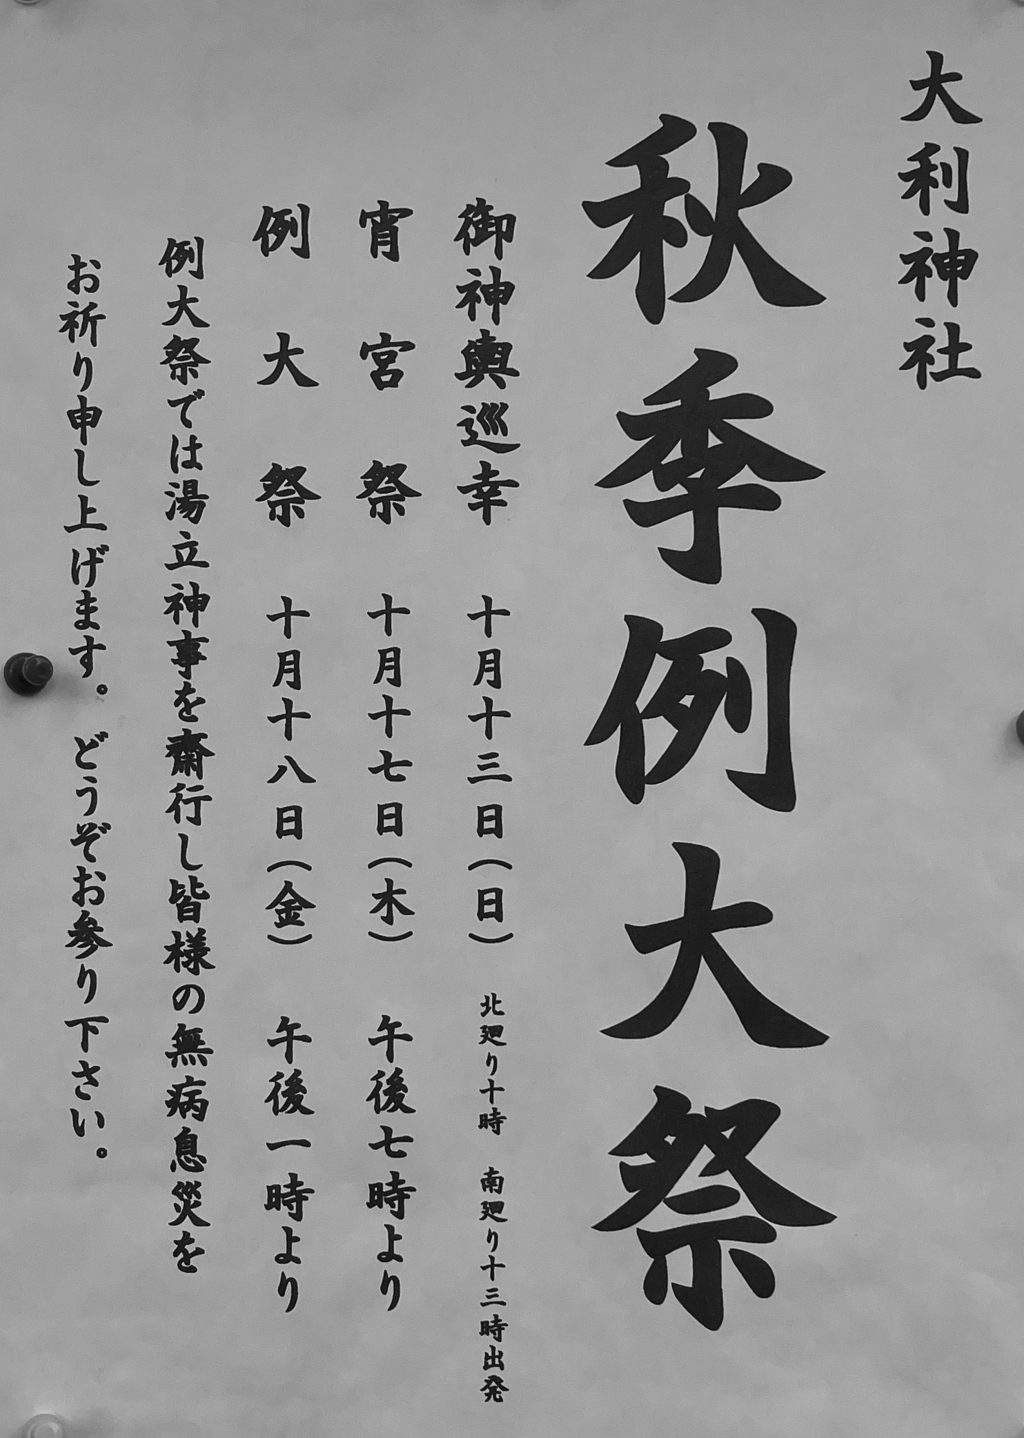 大利神社
秋季例大祭
御神輿巡幸 十月十三日(日) 北廻り十時 南廻り十三時出発
宵宮祭 十月十七日(木) 午後七時より
例大祭 十月十八日(金) 午後一時より
例大祭では湯立神事を齋行し皆様の無病息災を
お祈り申し上げます。どうぞお参り下さい。